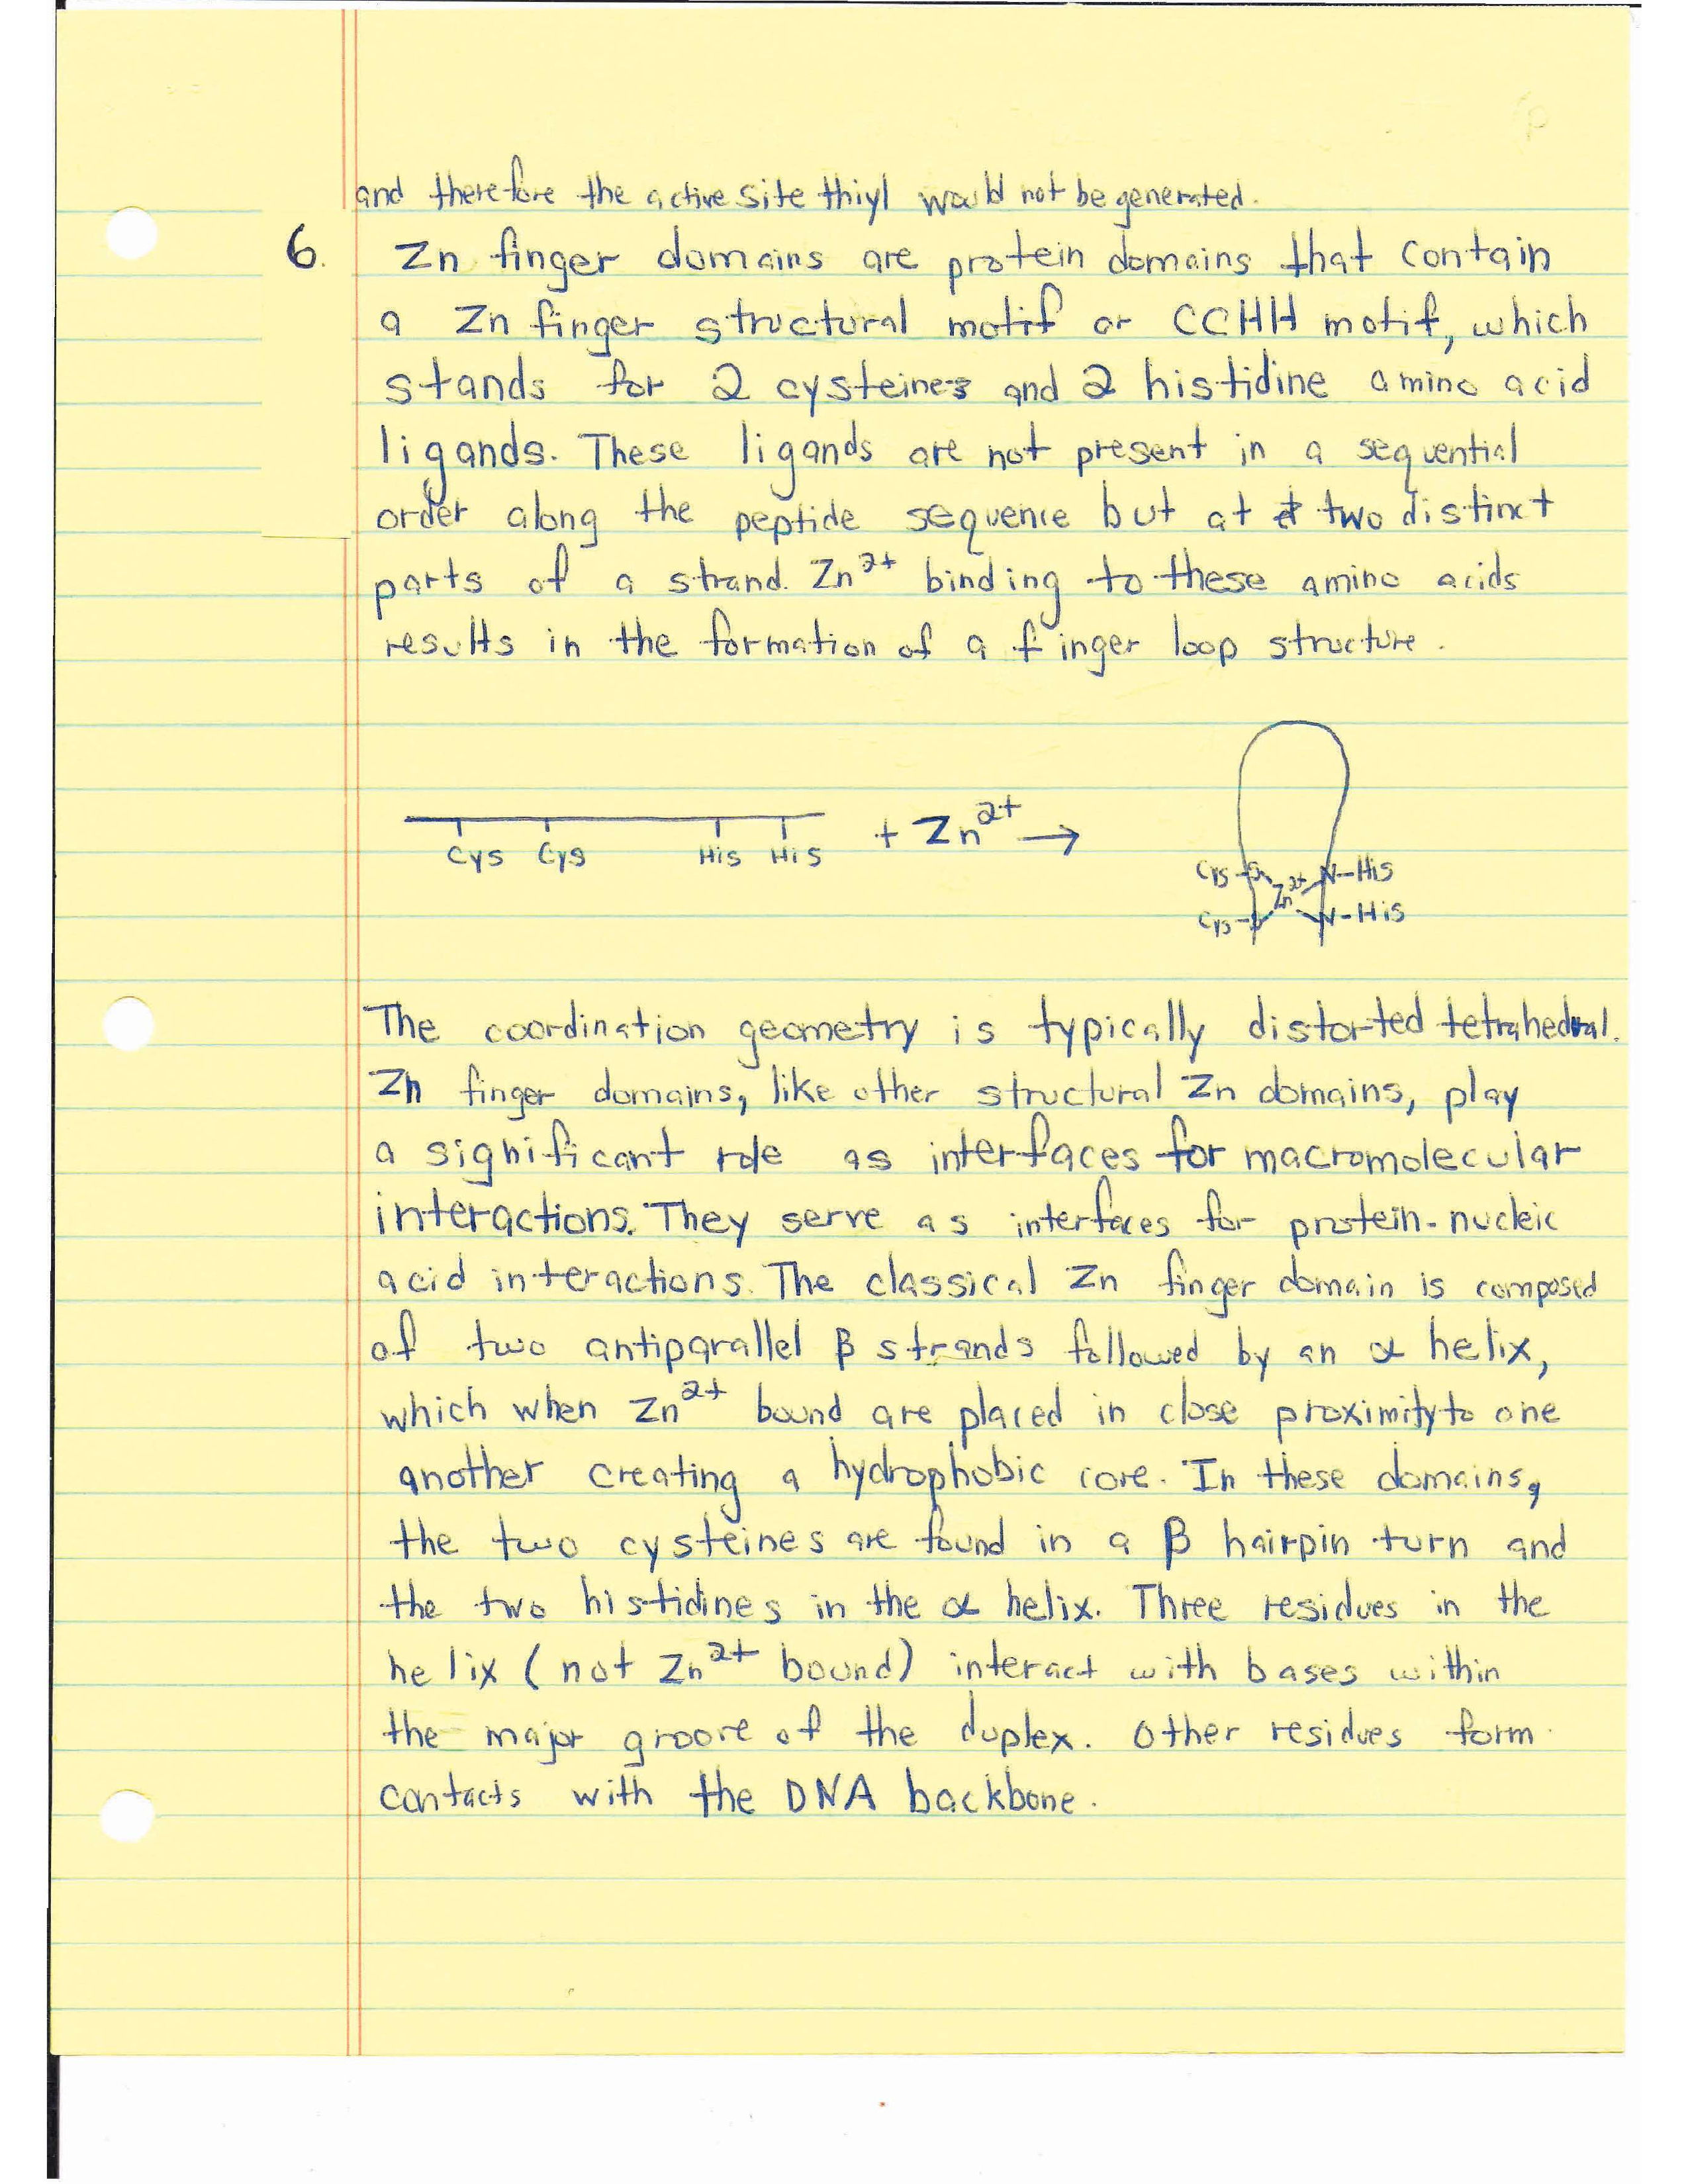 and therefore the active site thiyl would not be generated.
6. Zn finger domains are protein domains that contain
a Zn finger structural motif or CCHH motif, which
stands for 2 cysteines and 2 histidine amino acid
ligands. These ligands are not present in a sequential
order along the peptide sequence but at two distinct
parts of a strand. Zn²⁺ binding to these amino acids
results in the formation of a finger loop structure.
Cys Cys His His + Zn²⁺ →
Cys-S Zn²⁺ N-His
Cys-S N-His
The coordination geometry is typically distorted tetrahedral.
Zn finger domains, like other structural Zn domains, play
a significant role as interfaces for macromolecular
interactions. They serve as interfaces for protein-nucleic
acid interactions. The classical Zn finger domain is composed
of two antiparallel β strands followed by an α helix,
which when Zn²⁺ bound are placed in close proximity to one
another creating a hydrophobic core. In these domains,
the two cysteines are found in a β hairpin turn and
the two histidines in the α helix. Three residues in the
helix (not Zn²⁺ bound) interact with bases within
the major groove of the duplex. Other residues form
contacts with the DNA backbone.